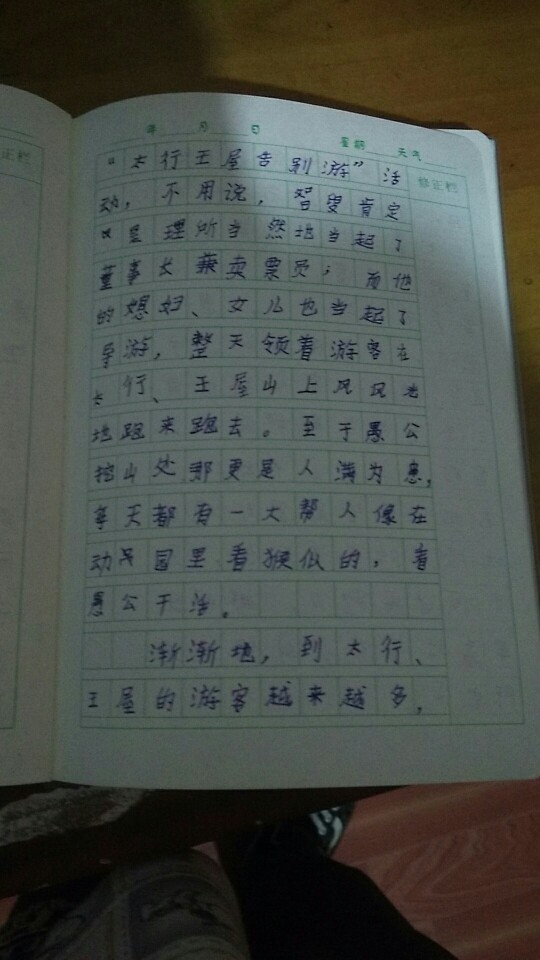 正栏
年 月 日 星期 天气
修正栏
“太行王屋告别游”活
动,不用说,智叟肯定
又是理所当然地当起了
董事长兼卖票员;而他
的媳妇、女儿也当起了
导游,整天领着游客在
太行、王屋山上风风光光
地跑来跑去。至于愚公
挖山处那更是人满为患,
每天都有一大帮人像在
动物园里看猴似的,看
愚公干活。
渐渐地,到太行、
王屋的游客越来越多,